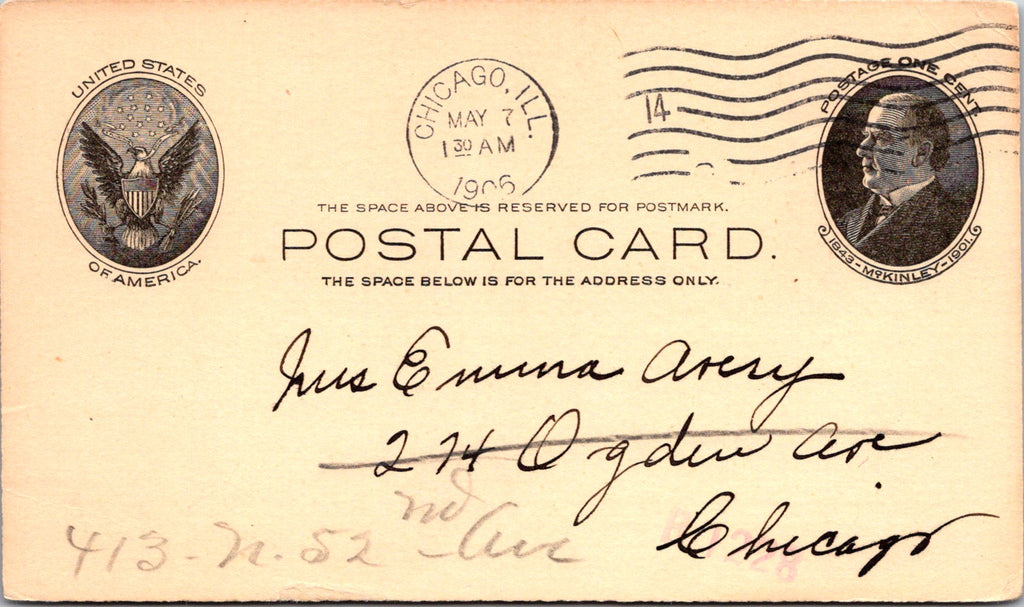 UNITED STATES
OF AMERICA.
CHICAGO, ILL.
MAY 7
1 30 AM
1906
14
POSTAGE ONE CENT.
1843-McKINLEY-1901.
THE SPACE ABOVE IS RESERVED FOR POSTMARK.
POSTAL CARD.
THE SPACE BELOW IS FOR THE ADDRESS ONLY.
Mrs Emma Avery
274 Ogden Ave
Chicago
413-N. 52nd Ave